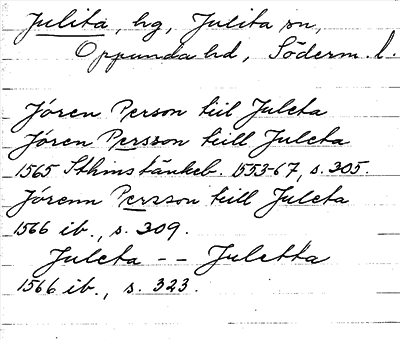 Julita, hg, Julita sn,
Oppunda hd, Söderm. l.
Jören Person till Juleta
Jören Persson teill Juleta
1565 Sthms tänkeb. 1553-67, s. 305.
Jörenn Persson teill Juleta
1566 ib., s. 309.
Juleta -- Juletta
1566 ib., s. 323.